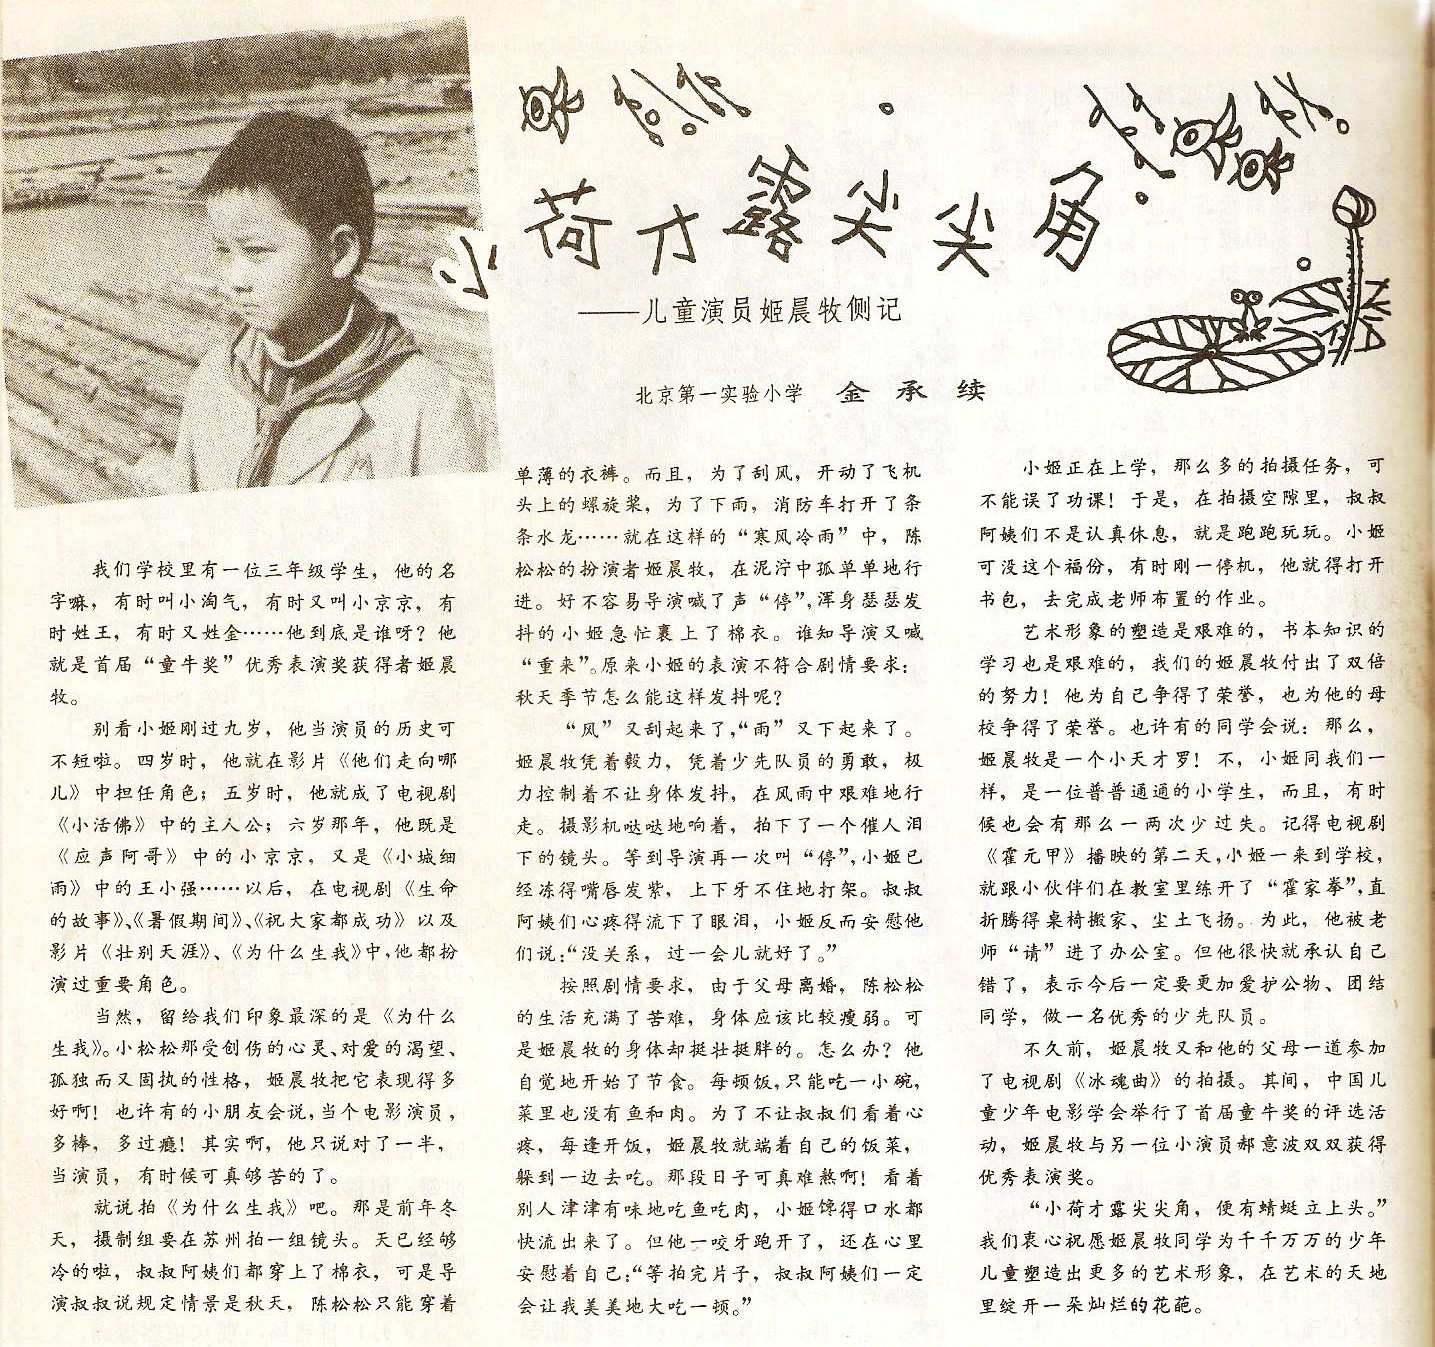 小荷才露尖尖角
——儿童演员姬晨牧侧记
北京第一实验小学 金承续
我们学校里有一位三年级学生，他的名
字嘛，有时叫小淘气，有时又叫小京京，有
时姓王，有时又姓金……他到底是谁呀？他
就是首届“童牛奖”优秀表演奖获得者姬晨
牧。
别看小姬刚过九岁，他当演员的历史可
不短啦。四岁时，他就在影片《他们走向哪
儿》中担任角色；五岁时，他就成了电视剧
《小活佛》中的主人公；六岁那年，他既是
《应声阿哥》中的小京京，又是《小城细
雨》中的王小强……以后，在电视剧《生命
的故事》、《暑假期间》、《祝大家都成功》以及
影片《壮别天涯》、《为什么生我》中，他都扮
演过重要角色。
当然，留给我们印象最深的是《为什么
生我》。小松松那受创伤的心灵、对爱的渴望、
孤独而又固执的性格，姬晨牧把它表现得多
好啊！也许有的小朋友会说，当个电影演员，
多棒，多过瘾！其实啊，他只说对了一半，
当演员，有时候可真够苦的了。
就说拍《为什么生我》吧。那是前年冬
天，摄制组要在苏州拍一组镜头。天已经够
冷的啦，叔叔阿姨们都穿上了棉衣，可是导
演叔叔说规定情景是秋天，陈松松只能穿着
单薄的衣裤。而且，为了刮风，开动了飞机
头上的螺旋桨，为了下雨，消防车打开了条
条水龙……就在这样的“寒风冷雨”中，陈
松松的扮演者姬晨牧，在泥泞中孤单单地行
进。好不容易导演喊了声“停”，浑身瑟瑟发
抖的小姬急忙裹上了棉衣。谁知导演又喊
“重来”。原来小姬的表演不符合剧情要求：
秋天季节怎么能这样发抖呢？
“风”又刮起来了，“雨”又下起来了。
姬晨牧凭着毅力，凭着少先队员的勇敢，极
力控制着不让身体发抖，在风雨中艰难地行
走。摄影机哒哒地响着，拍下了一个催人泪
下的镜头。等到导演再一次叫“停”，小姬已
经冻得嘴唇发紫，上下牙不住地打架。叔叔
阿姨们心疼得流下了眼泪，小姬反而安慰他
们说：“没关系，过一会儿就好了。”
按照剧情要求，由于父母离婚，陈松松
的生活充满了苦难，身体应该比较瘦弱。可
是姬晨牧的身体却挺壮挺胖的。怎么办？他
自觉地开始了节食。每顿饭，只能吃一小碗，
菜里也没有鱼和肉。为了不让叔叔们看着心
疼，每逢开饭，姬晨牧就端着自己的饭菜，
躲到一边去吃。那段日子可真难熬啊！看着
别人津津有味地吃鱼吃肉，小姬馋得口水都
快流出来了。但他一咬牙跑开了，还在心里
安慰着自己：“等拍完片子，叔叔阿姨们一定
会让我美美地大吃一顿。”
小姬正在上学，那么多的拍摄任务，可
不能误了功课！于是，在拍摄空隙里，叔叔
阿姨们不是认真休息，就是跑跑玩玩。小姬
可没这个福份，有时刚一停机，他就得打开
书包，去完成老师布置的作业。
艺术形象的塑造是艰难的，书本知识的
学习也是艰难的，我们的姬晨牧付出了双倍
的努力！他为自己争得了荣誉，也为他的母
校争得了荣誉。也许有的同学会说：那么，
姬晨牧是一个小天才罗！不，小姬同我们一
样，是一位普普通通的小学生，而且，有时
候也会有那么一两次少过失。记得电视剧
《霍元甲》播映的第二天，小姬一来到学校，
就跟小伙伴们在教室里练开了“霍家拳”，直
折腾得桌椅搬家、尘土飞扬。为此，他被老
师“请”进了办公室。但他很快就承认自己
错了，表示今后一定要更加爱护公物、团结
同学，做一名优秀的少先队员。
不久前，姬晨牧又和他的父母一道参加
了电视剧《冰魂曲》的拍摄。其间，中国儿
童少年电影学会举行了首届童牛奖的评选活
动，姬晨牧与另一位小演员郝意波双双获得
优秀表演奖。
“小荷才露尖尖角，便有蜻蜓立上头。”
我们衷心祝愿姬晨牧同学为千千万万的少年
儿童塑造出更多的艺术形象，在艺术的天地
里绽开一朵灿烂的花葩。